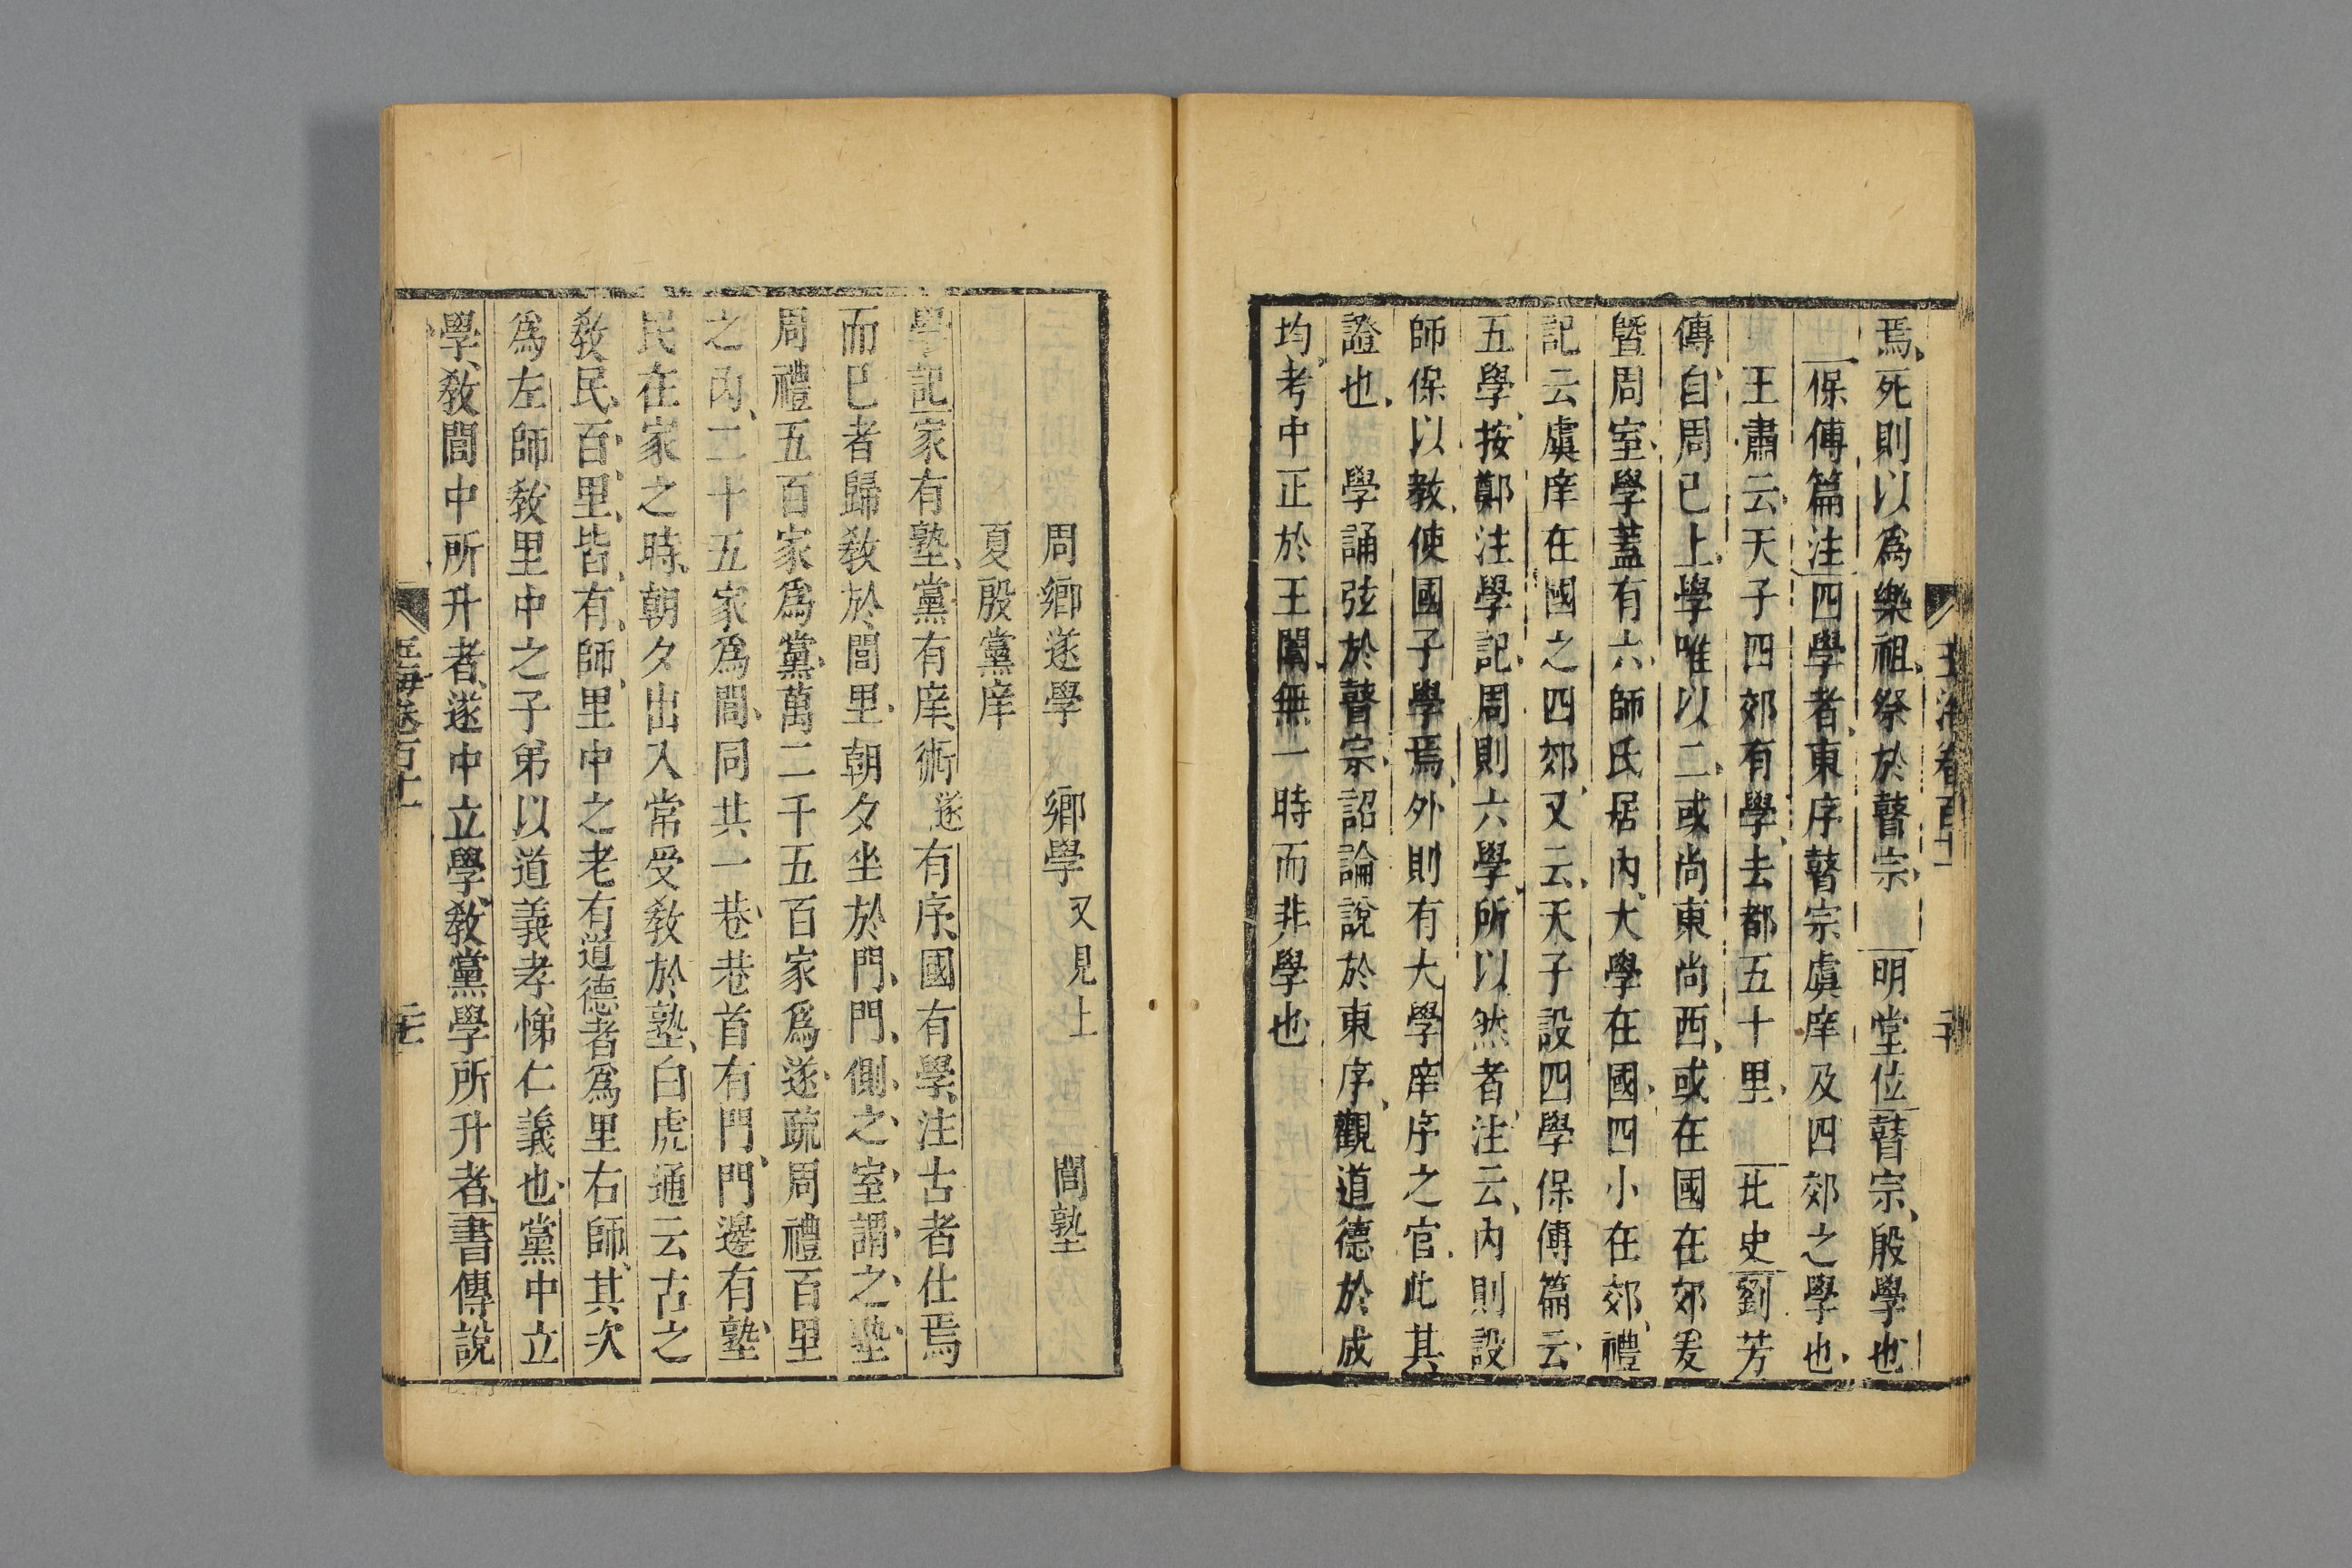 玉海卷百十一
焉死則以爲樂祖祭於瞽宗 明堂位瞽宗殷學也
保傅篇注四學者東序瞽宗虞庠及四郊之學也
王肅云天子四郊有學去都五十里 北史劉芳
傳自周已上學唯以二或尚東尚西或在國在郊爰
曁周室學蓋有六師氏居內大學在國四小在郊禮
記云虞庠在國之四郊又云天子設四學保傅篇云
五學按鄭注學記周則六學所以然者注云內則設
師保以教使國子學焉外則有大學庠序之官此其
證也 學誦弦於瞽宗詔論說於東序觀道德於成
均考中正於王闈無一時而非學也
周鄉遂學 鄉學又見上 閭塾
夏殷黨庠
學記家有塾黨有庠術遂有序國有學注古者仕焉
而已者歸敎於閭里朝夕坐於門門側之室謂之塾
周禮五百家爲黨萬二千五百家爲遂疏周禮百里
之內二十五家爲閭同共一巷巷首有門門邊有塾
民在家之時朝夕出入常受敎於塾白虎通云古之
敎民百里皆有師里中之老有道德者爲里右師其次
爲左師敎里中之子弟以道義孝悌仁義也黨中立
學敎閭中所升者遂中立學敎黨學所升者書傳說
玉海卷百十一